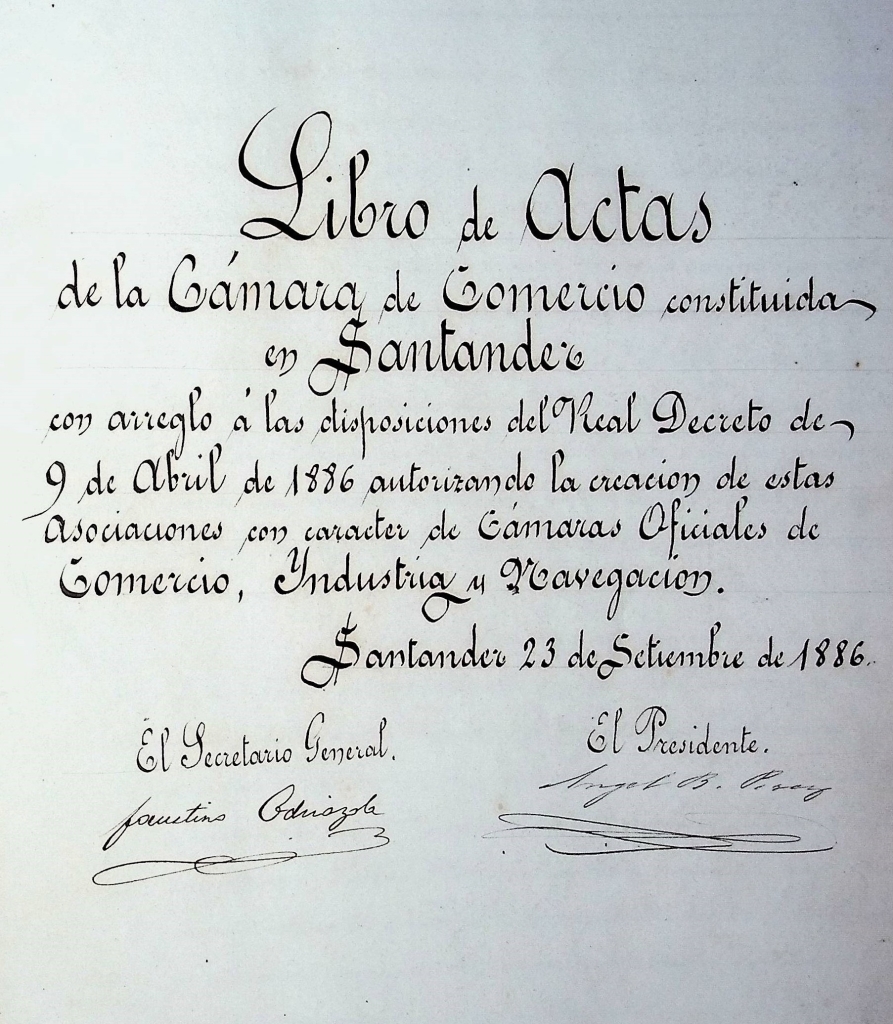 Libro de Actas
de la Cámara de Comercio constituida
en Santander
con arreglo á las disposiciones del Real Decreto de
9 de Abril de 1886 autorizando la creacion de estas
Asociaciones con caracter de Cámaras Oficiales de
Comercio, Yndustria y Navegación.
Santander 23 de Setiembre de 1886.
El Secretario General.
El Presidente.
Faustino Odriozola
Angel B. Perez